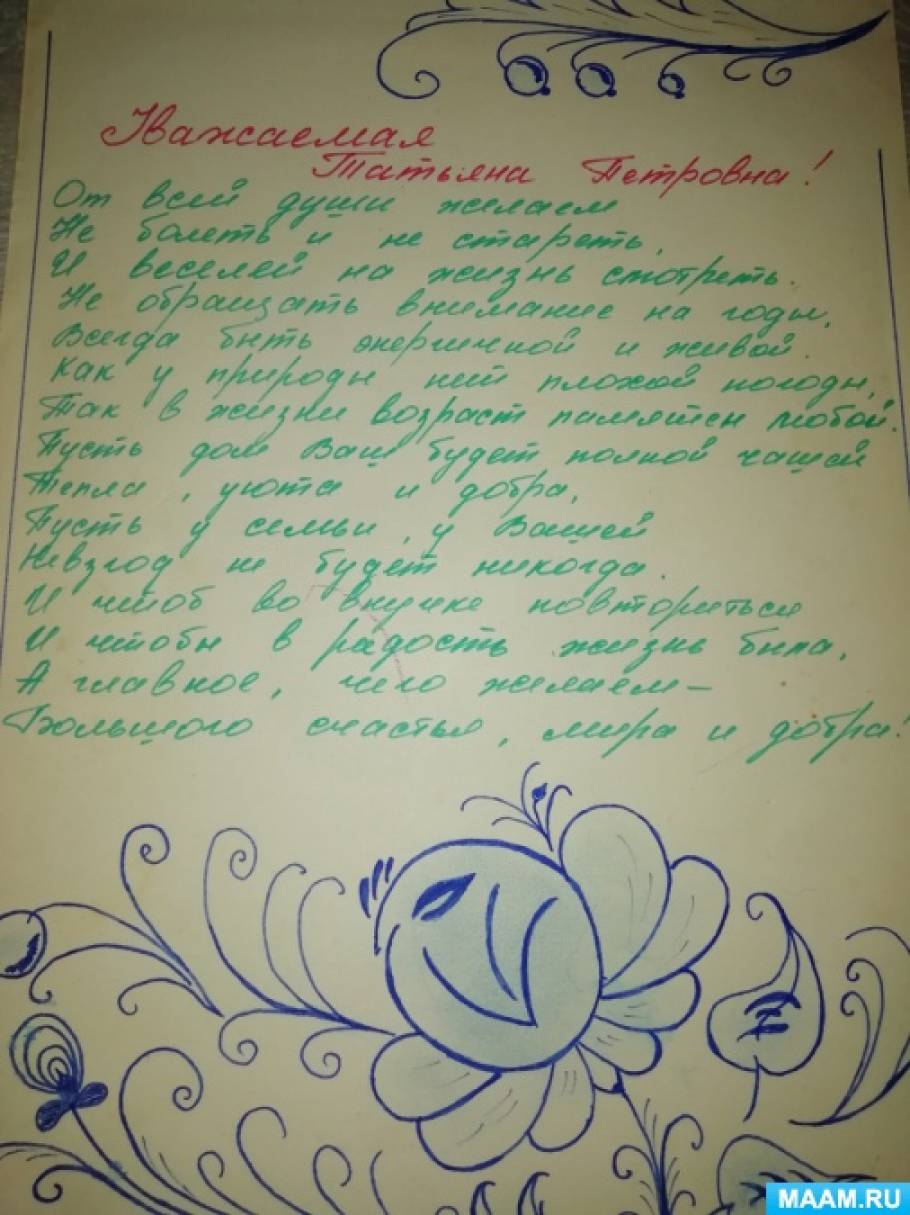 Уважаемая
Татьяна Петровна!
От всей души желаем
Не болеть и не стареть,
И веселей на жизнь смотреть.
Не обращать внимание на годы,
Всегда быть энергичной и живой.
Как у природы нет плохой погоды,
Так в жизни возраст памятен любой.
Пусть дом Ваш будет полной чашей
Тепла, уюта и добра,
Пусть у семьи, у Вашей
Невзгод не будет никогда.
И чтоб во внучке повториться
И чтобы в радость жизнь была,
А главное, чего желаем –
Большого счастья, мира и добра!
MAAM.RU